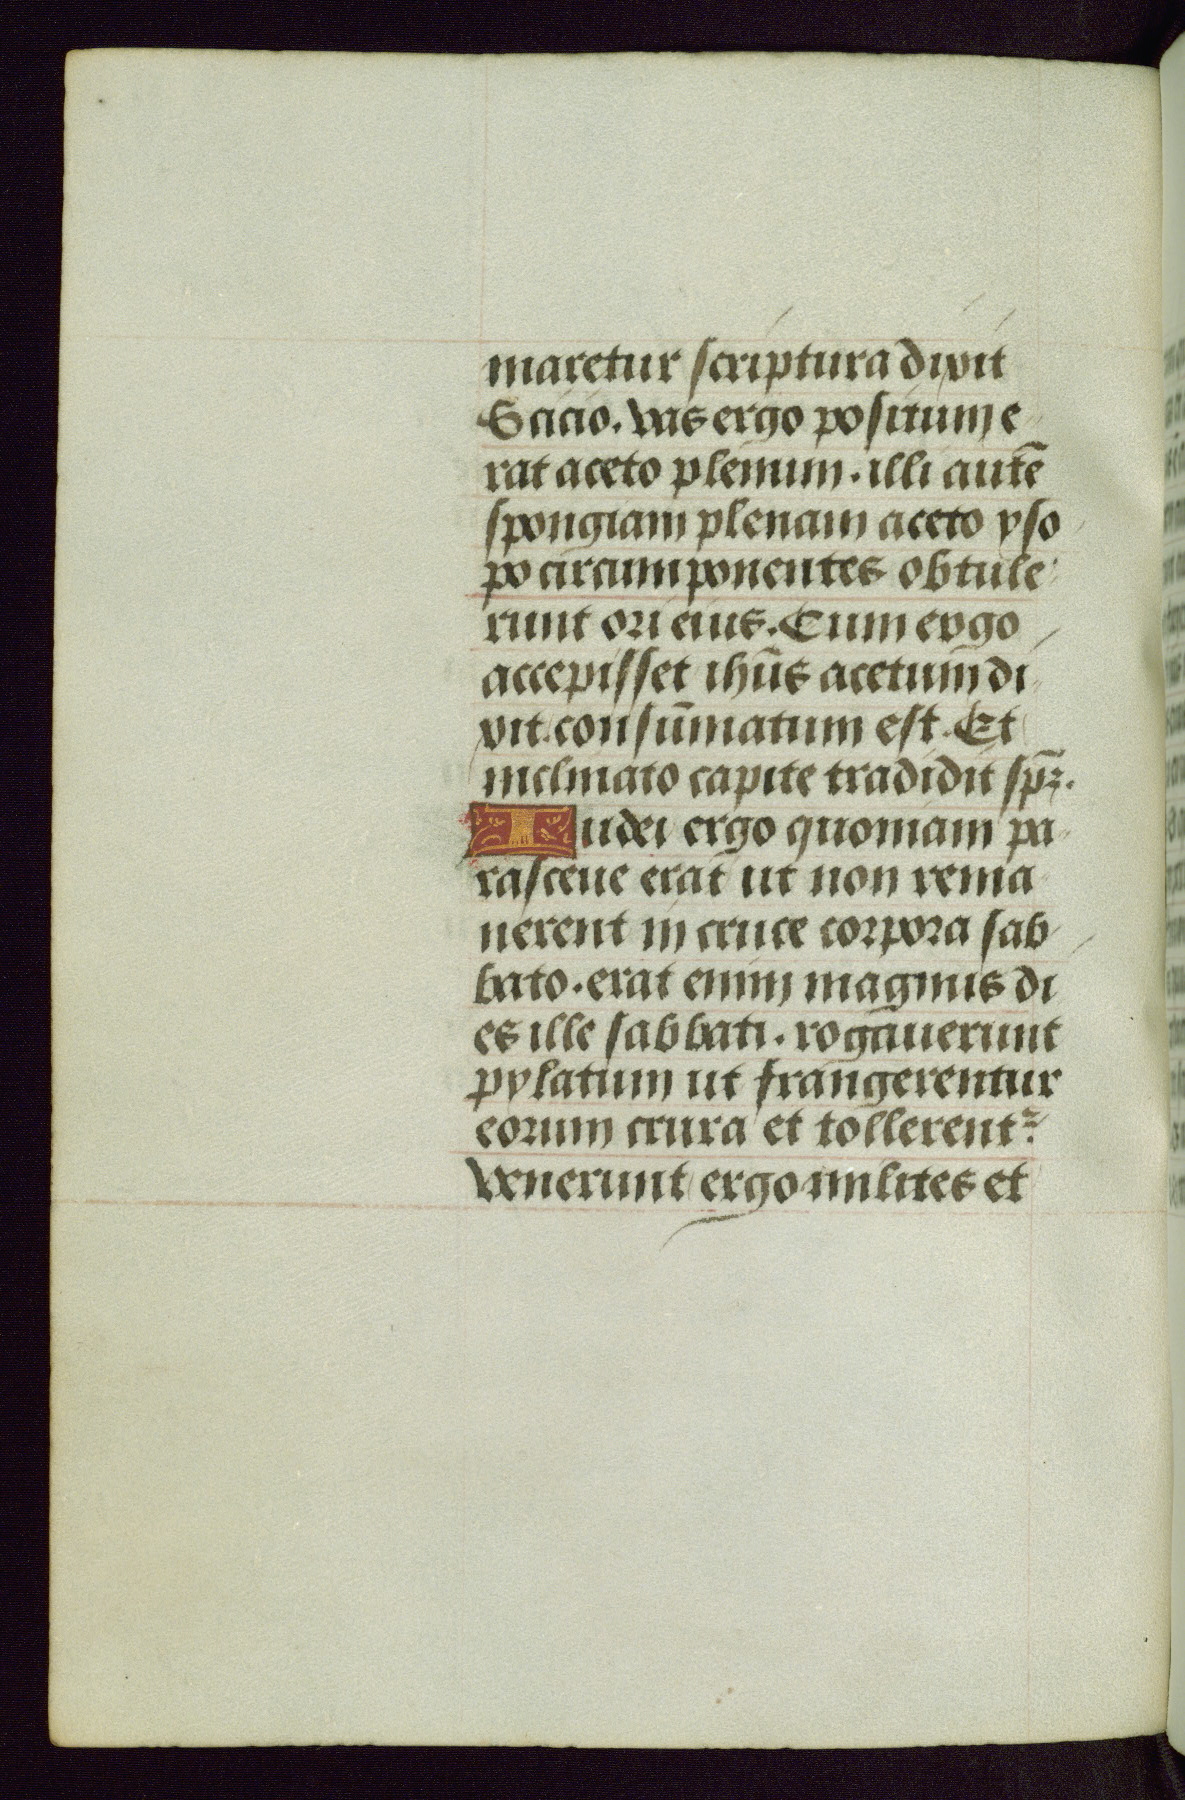 maretur scriptura dixit
Scicio. Vas ergo positum e
rat aceto plenum. illi autē
spongiam plenam aceto yso
po circumponentes obtule
runt ori eius. Cum ergo
accepisset ihūs acetum di
xit. consūmatum est. Et
inclinato capite tradidit sp̄ꝫ.
Iudei ergo quoniam pa
rasceue erat ut non rema
nerent in cruce corpora sab
bato. erat enim magnus di
es ille sabbati. rogauerunt
pylatum ut frangerentur
eorum crura et tollerentᷣ.
Venerunt ergo milites et